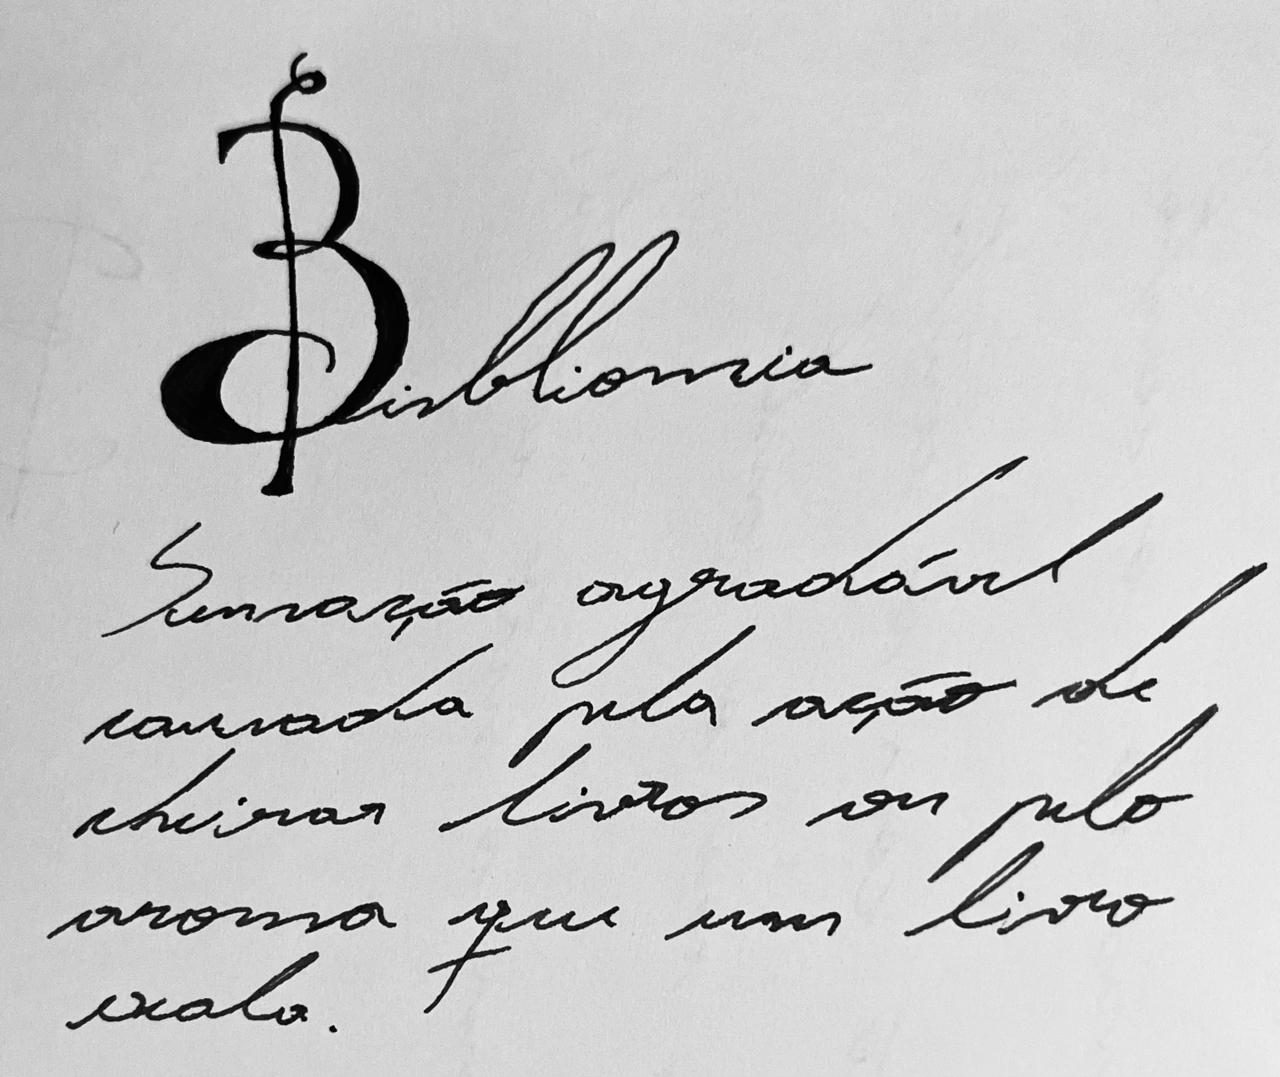 Bibliosmia
Sensação agradável
causada pela ação de
cheirar livros ou pelo
aroma que um livro
exala.